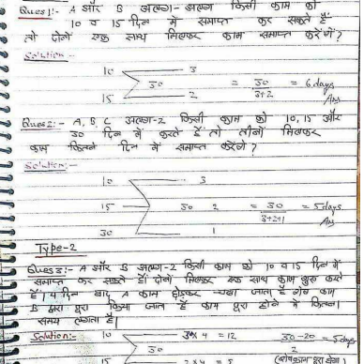 Ques 1:- A और B अलग-अलग किसी काम को
10 व 15 दिन में समाप्त कर सकते हैं
तो दोनों एक साथ मिलकर काम समाप्त करेंगे?
Solution -
10 3
30 = 30/3+2 = 6 days
15 2 Ans
Ques 2:- A, B, C अलग-2 किसी काम को 10, 15 और
30 दिन में करते हैं तो तीनों मिलकर
काम कितने दिन में समाप्त करेंगे?
Solution:-
10 3
15 30 2 = 30/3+2+1 = 5 days
30 1 Ans
Type-2
Ques 3:- A और B अलग-2 किसी काम को 10 व 15 दिन में
समाप्त कर सकते हैं। दोनों मिलकर एक साथ काम शुरू करते
हैं। 4 दिन बाद A काम छोड़कर चला जाता है शेष काम
B द्वारा पूरा किया जाता है काम पूरा होने में कितना
समय लगता है।
Solution:- 3x4 = 12 30-20 = 5 days
10 30 2